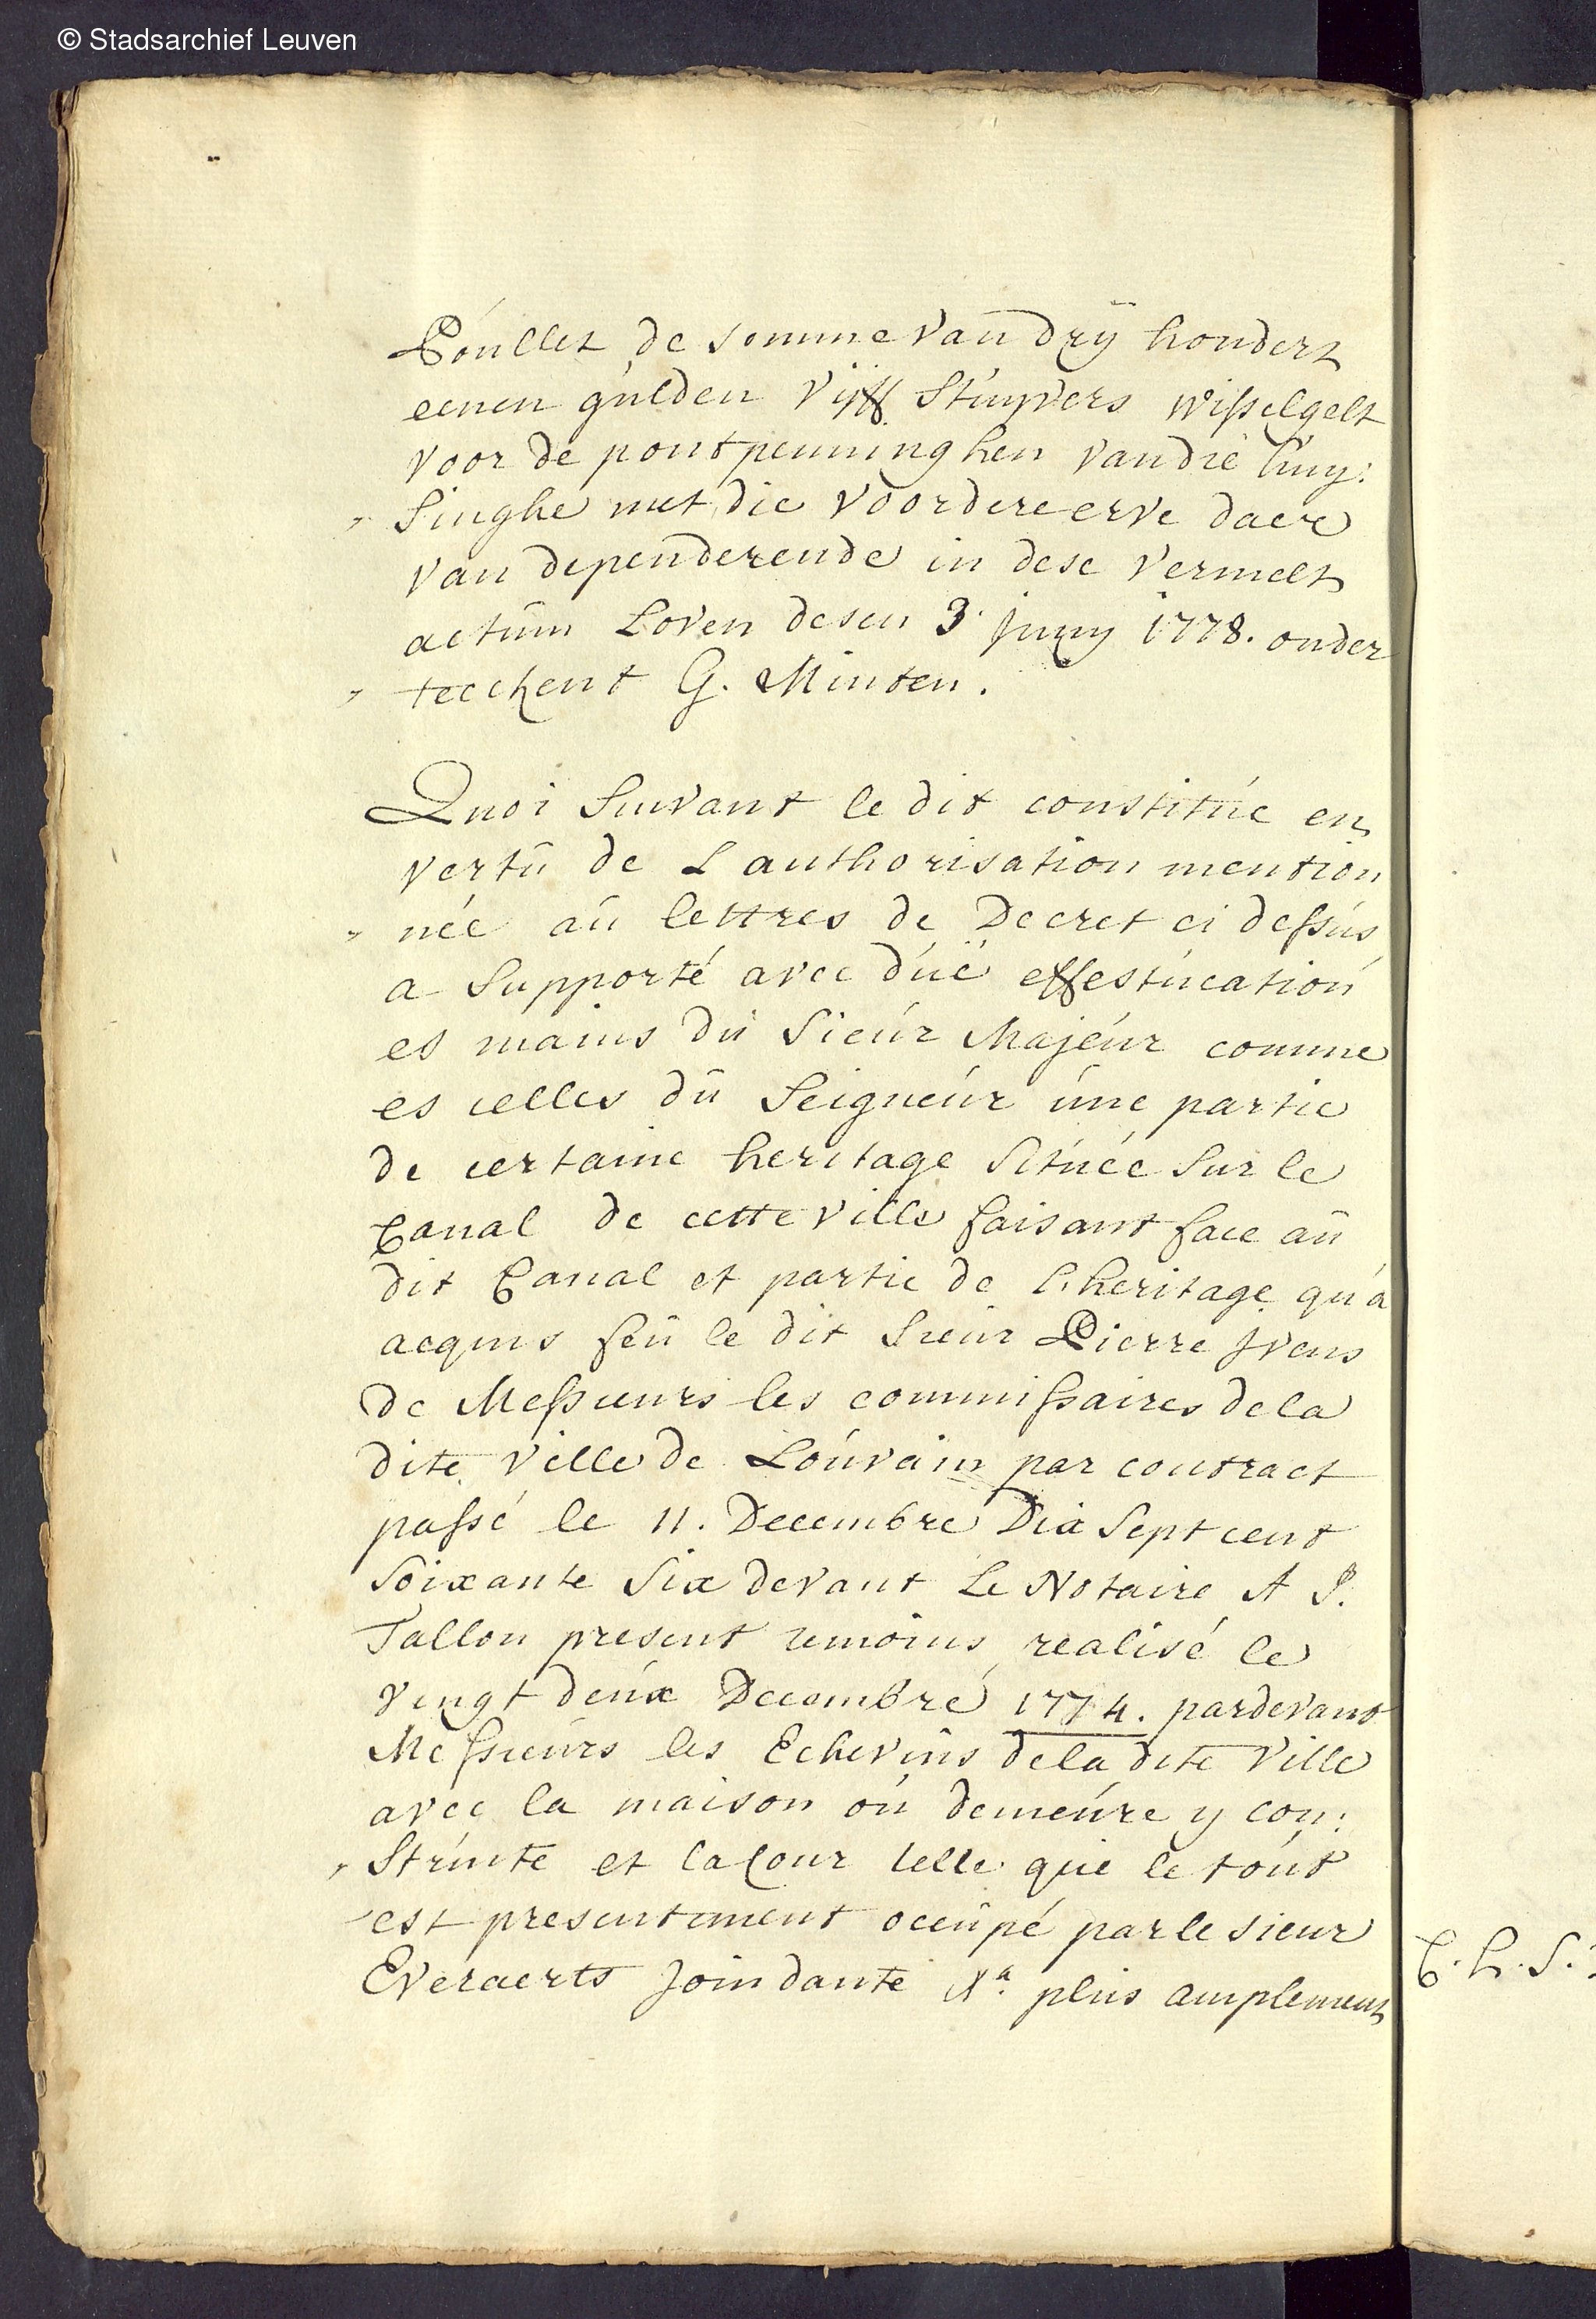 © Stadsarchief Leuven
Poullet de somme van drÿ hondert
eenen gulden vijff Stuyvers wisselgelt
voor de pontpenninghen van die huy:
„ Singhe met die voordere erve daer
van dependerende in dese vermelt
actum Loven desen 3. Juny 1778. onder
„ teeckent G. Minten.
Quoi Suivant le dit constitué en
vertu de L authorisation mention
„ née au lettres de Decret ci dessus
a Supporté avec duë effestucation
es mains du Sieur Majeur comme
es celles du Seigneur une partie
de certaine heritage Située Sur le
Canal de cette ville faisant face au
dit Canal et partie de l'heritage qu'a
acquis feu le dit Sieur Pierre Jvens
de Messieurs les commissaires de la
dite ville de Louvain par contract
passé le 11. Decembre Dix Sept cent
Soixante Six devant Le Notaire A P.
Tallon present temoins realisé le
vingt deux Decembre 1774. pardevant
Messieurs les Echevins de la dite ville
avec la maison ou demeure y con:
„ Struite et la Cour telle que le tout
est presentement occupé par le sieur
Everaerts Joindante Xa. plus amplement
C. L. S. :